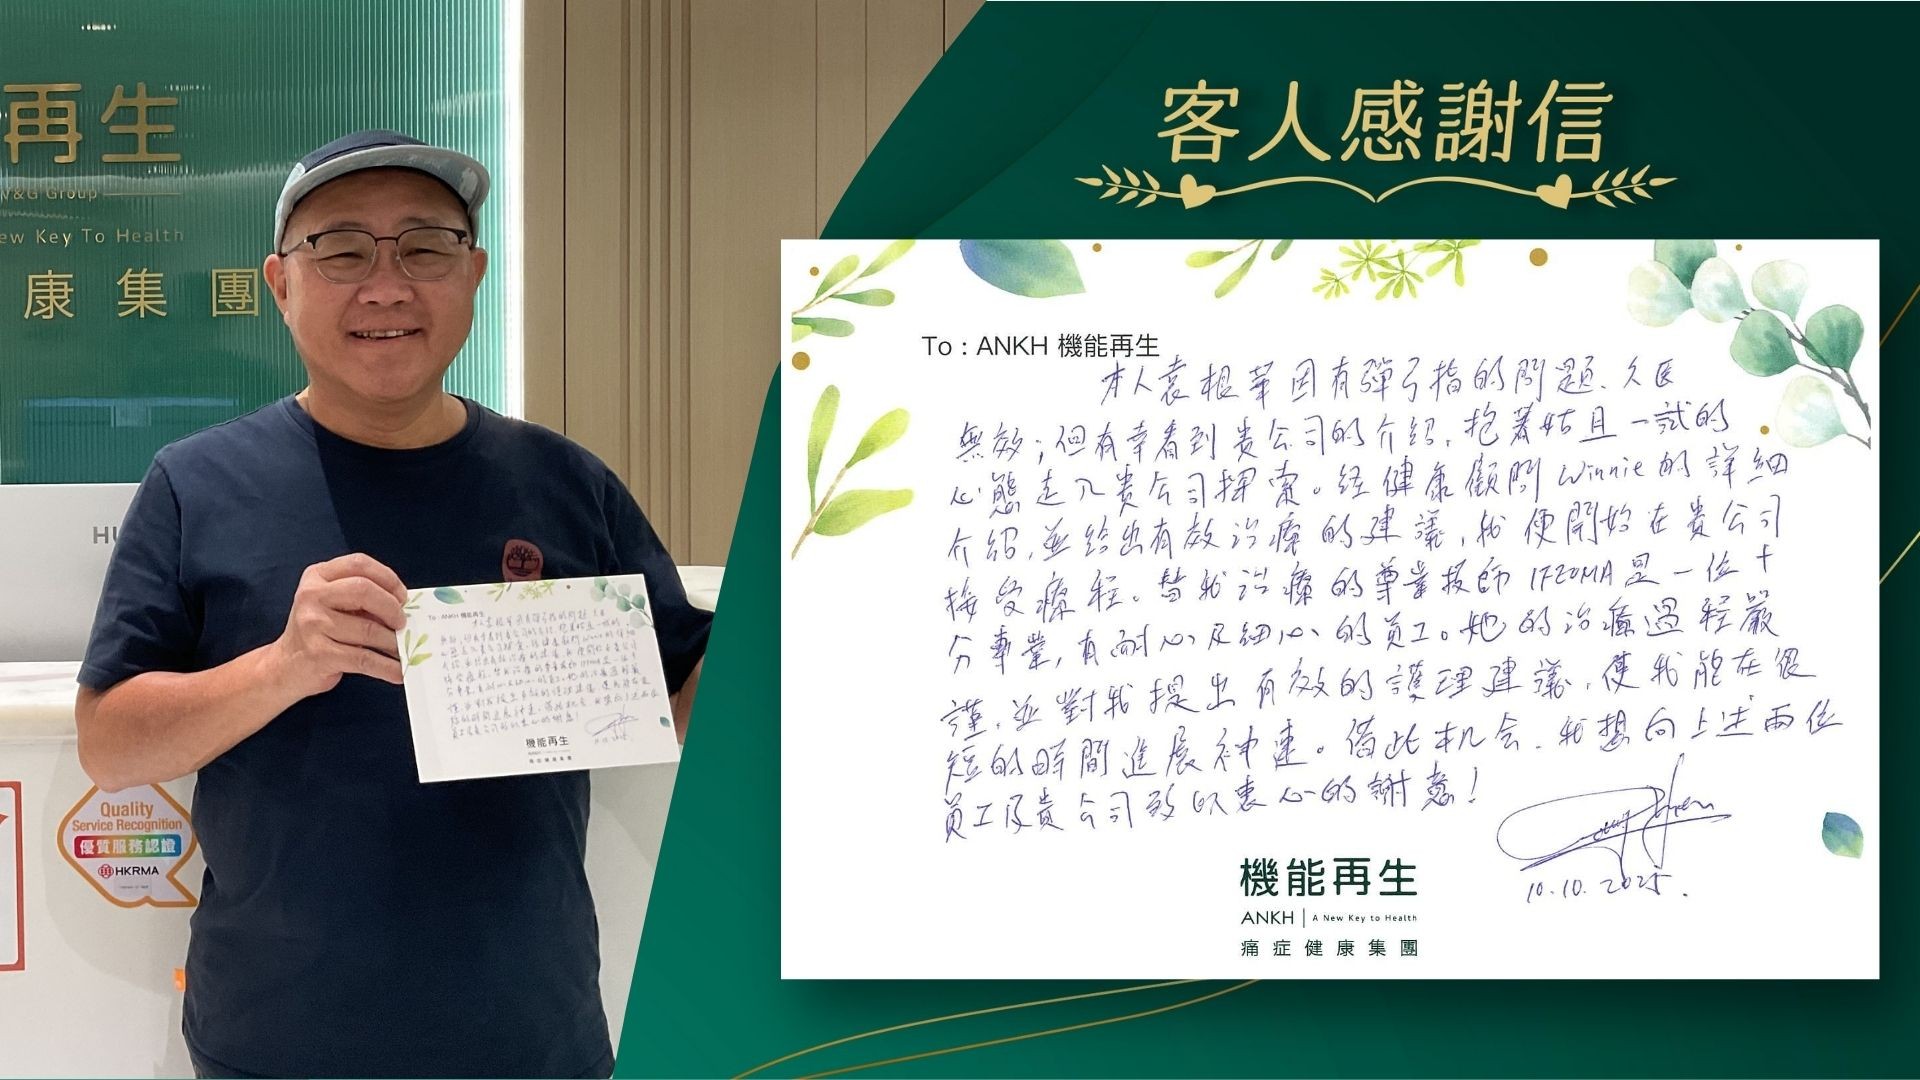 再生
V&G Group
New Key To Health
康集團
HU
Quality
Service Recognition
優質服務認證
HKRMA
客人感謝信
To : ANKH 機能再生
本人袁根華因有彈弓指的問題、久医
無效；但有幸看到貴公司的介紹，抱著姑且一試的
心態走入貴公司探索。经健康顧問Winnie的詳細
介紹，並给出有效治療的建議，我便開始在貴公司
接受療程。替我治療的專業技師IFEOMA是一位十
分專業，有耐心及細心的員工。她的治療過程嚴
謹，並對我提出有效的護理建議，使我能在很
短的時間進展神速。借此机会，我想向上述兩位
員工及貴公司致以衷心的謝意！
10.10.2025.
機能再生
ANKH | A New Key to Health
痛症健康集團